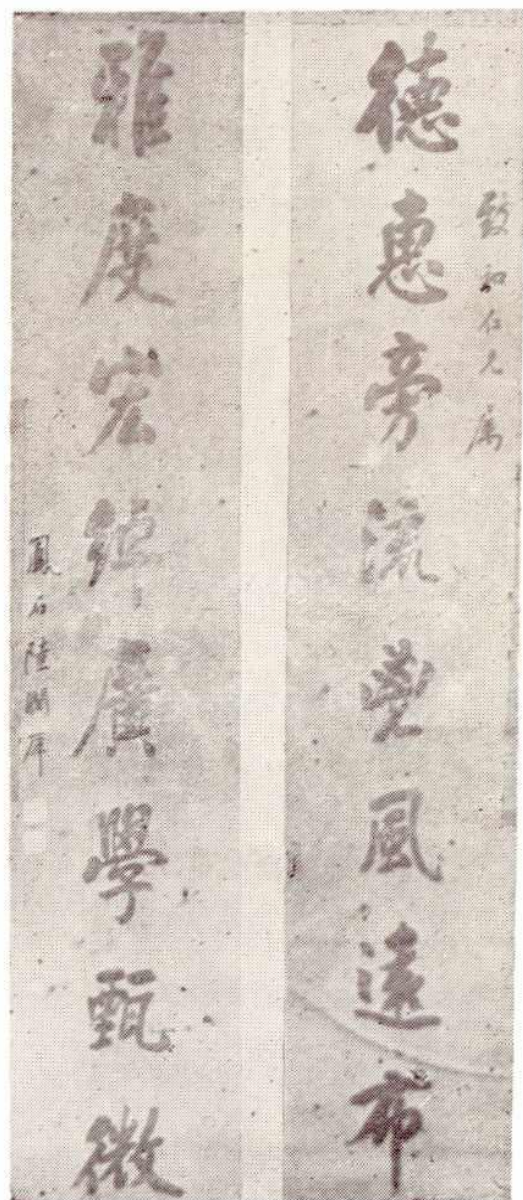 和仁兄属
德惠旁流風遠布
雅度宏綽廣學甄微
鳳石陸潤庠